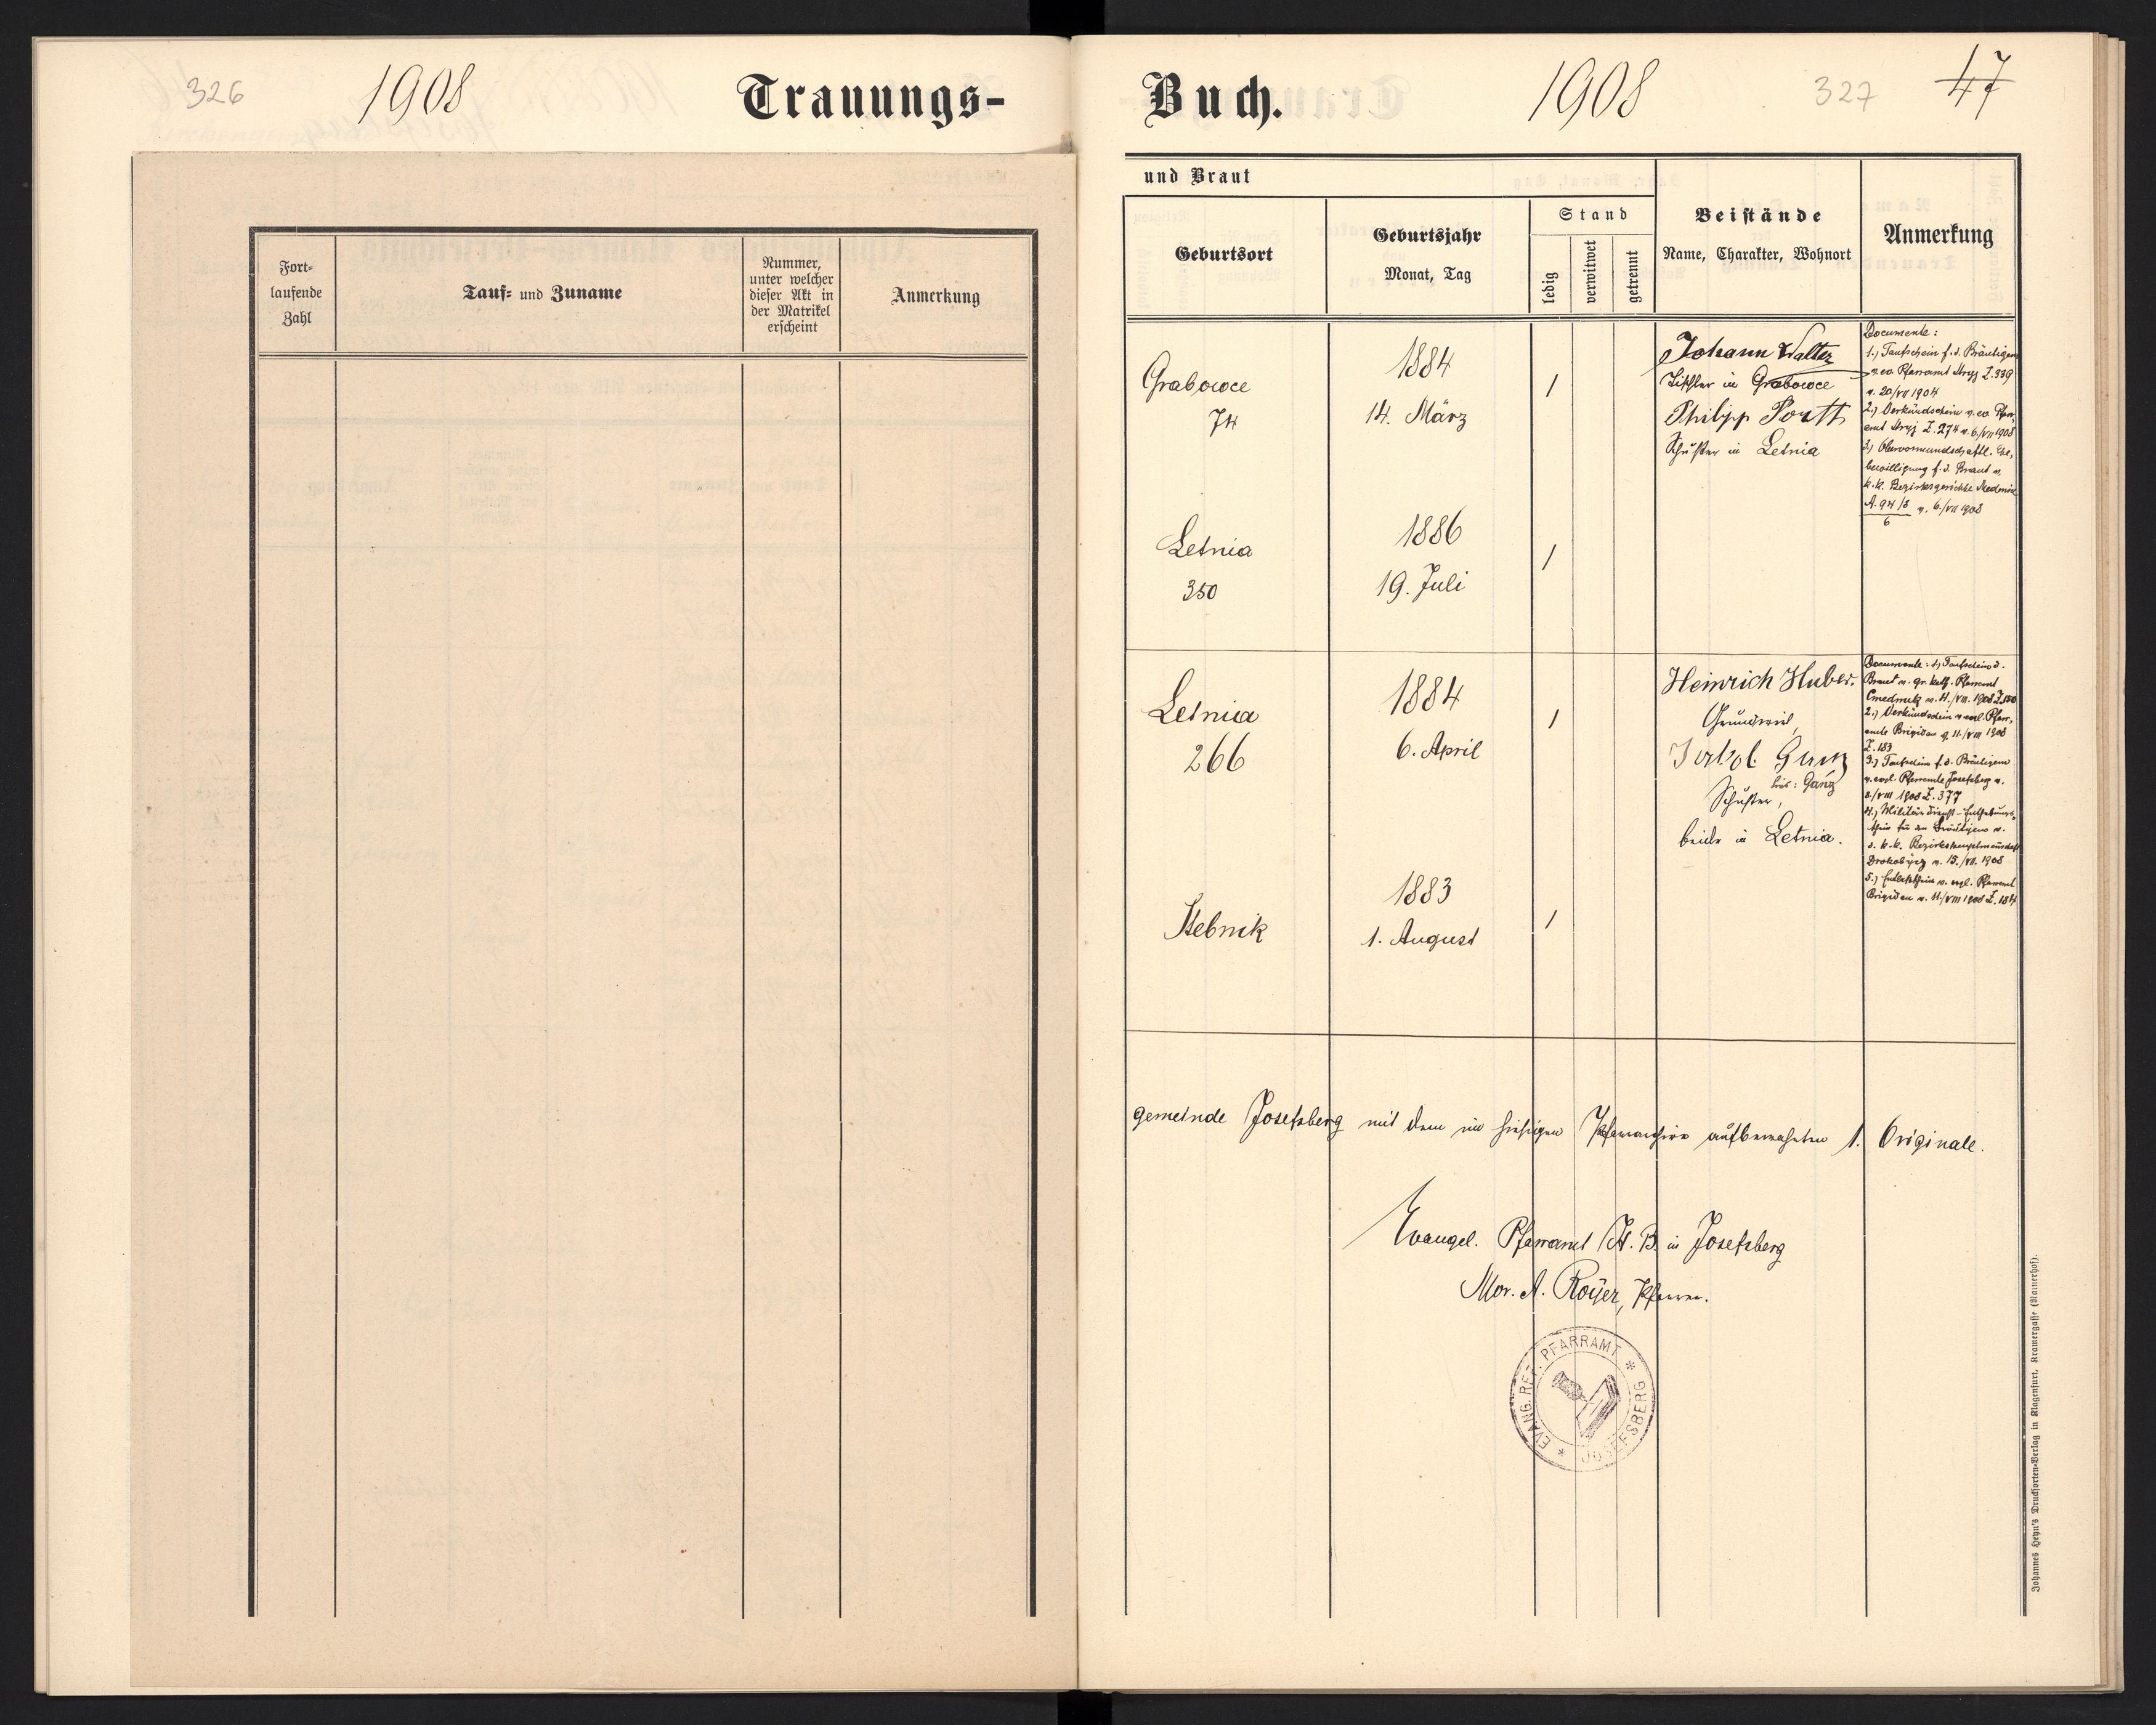 326
1908
Trauungs-
Fort-
laufende
Zahl
Tauf- und Zuname
Nummer,
unter welcher
dieser Akt in
der Matrikel
erscheint
Anmerkung
Buch.
1908
327
47
und Braut
Geburtsort
Geburtsjahr
Monat, Tag
Stand
ledig
verwitwet
getrennt
Beistände
Name, Charakter, Wohnort
Anmerkung
Grabowce
74
1884
14. März
/
Johann Walter
Tischler in Grabowce
Philipp
Schuster in Letnia
Documente:
1.) Taufschein f. d. Bräutigam
v. ev. Pfarramt Stryj Z. 339
v. 20/VII 1904
2.) Verkündschein v. ev. Pfarr-
amt Stryj Z. 274 v. 6./VII 1908
3.) Obervormundschaftl. Ehe-
bewilligung f. d. Braut v.
k. k. Bezirksgerichte
A. 94/8 v. 6./VII 1908
6
Letnia
350
1886
19. Juli
/
Letnia
266
1884
6. April
/
Heinrich Huber.
Grundwirt,
Schuster,
beide in Letnia.
Documente: 1.) Taufschein d.
Braut v. gr. kath. Pfarramt
v. 11./VIII. 1908 Z. 150
2.) Verkündschein v. evgl. Pfarr-
amte Brigidau v. 11./VIII 1908
Z. 183
3.) Taufschein f. d. Bräutigam
v. evgl. Pfarramte Josefsberg v.
8./VIII 1908 Z. 377
4.) Militärdienst-Enthebungs-
schein für den Bräutigam v.
d. k. k. Bezirkshauptmannschaft
v. 15./VII. 1908
5.) Entlaßschein v. evgl. Pfarramt
Brigidau v. 11./VIII 1908 Z. 184
Stebnik
1883
1. August
/
gemeinde Josefsberg mit dem im hiesigen Pfarrarchive aufbewahrten 1. Originale.
Evangel. Pfarramt H. B. in Josefsberg
Mor. A. Royer, Pfarrer.
EVANG. REF. PFARRAMT * JOSEFSBERG *
Johannes Heyn's Drucksorten-Verlag in Klagenfurt, Kramergasse (Rauerhof).